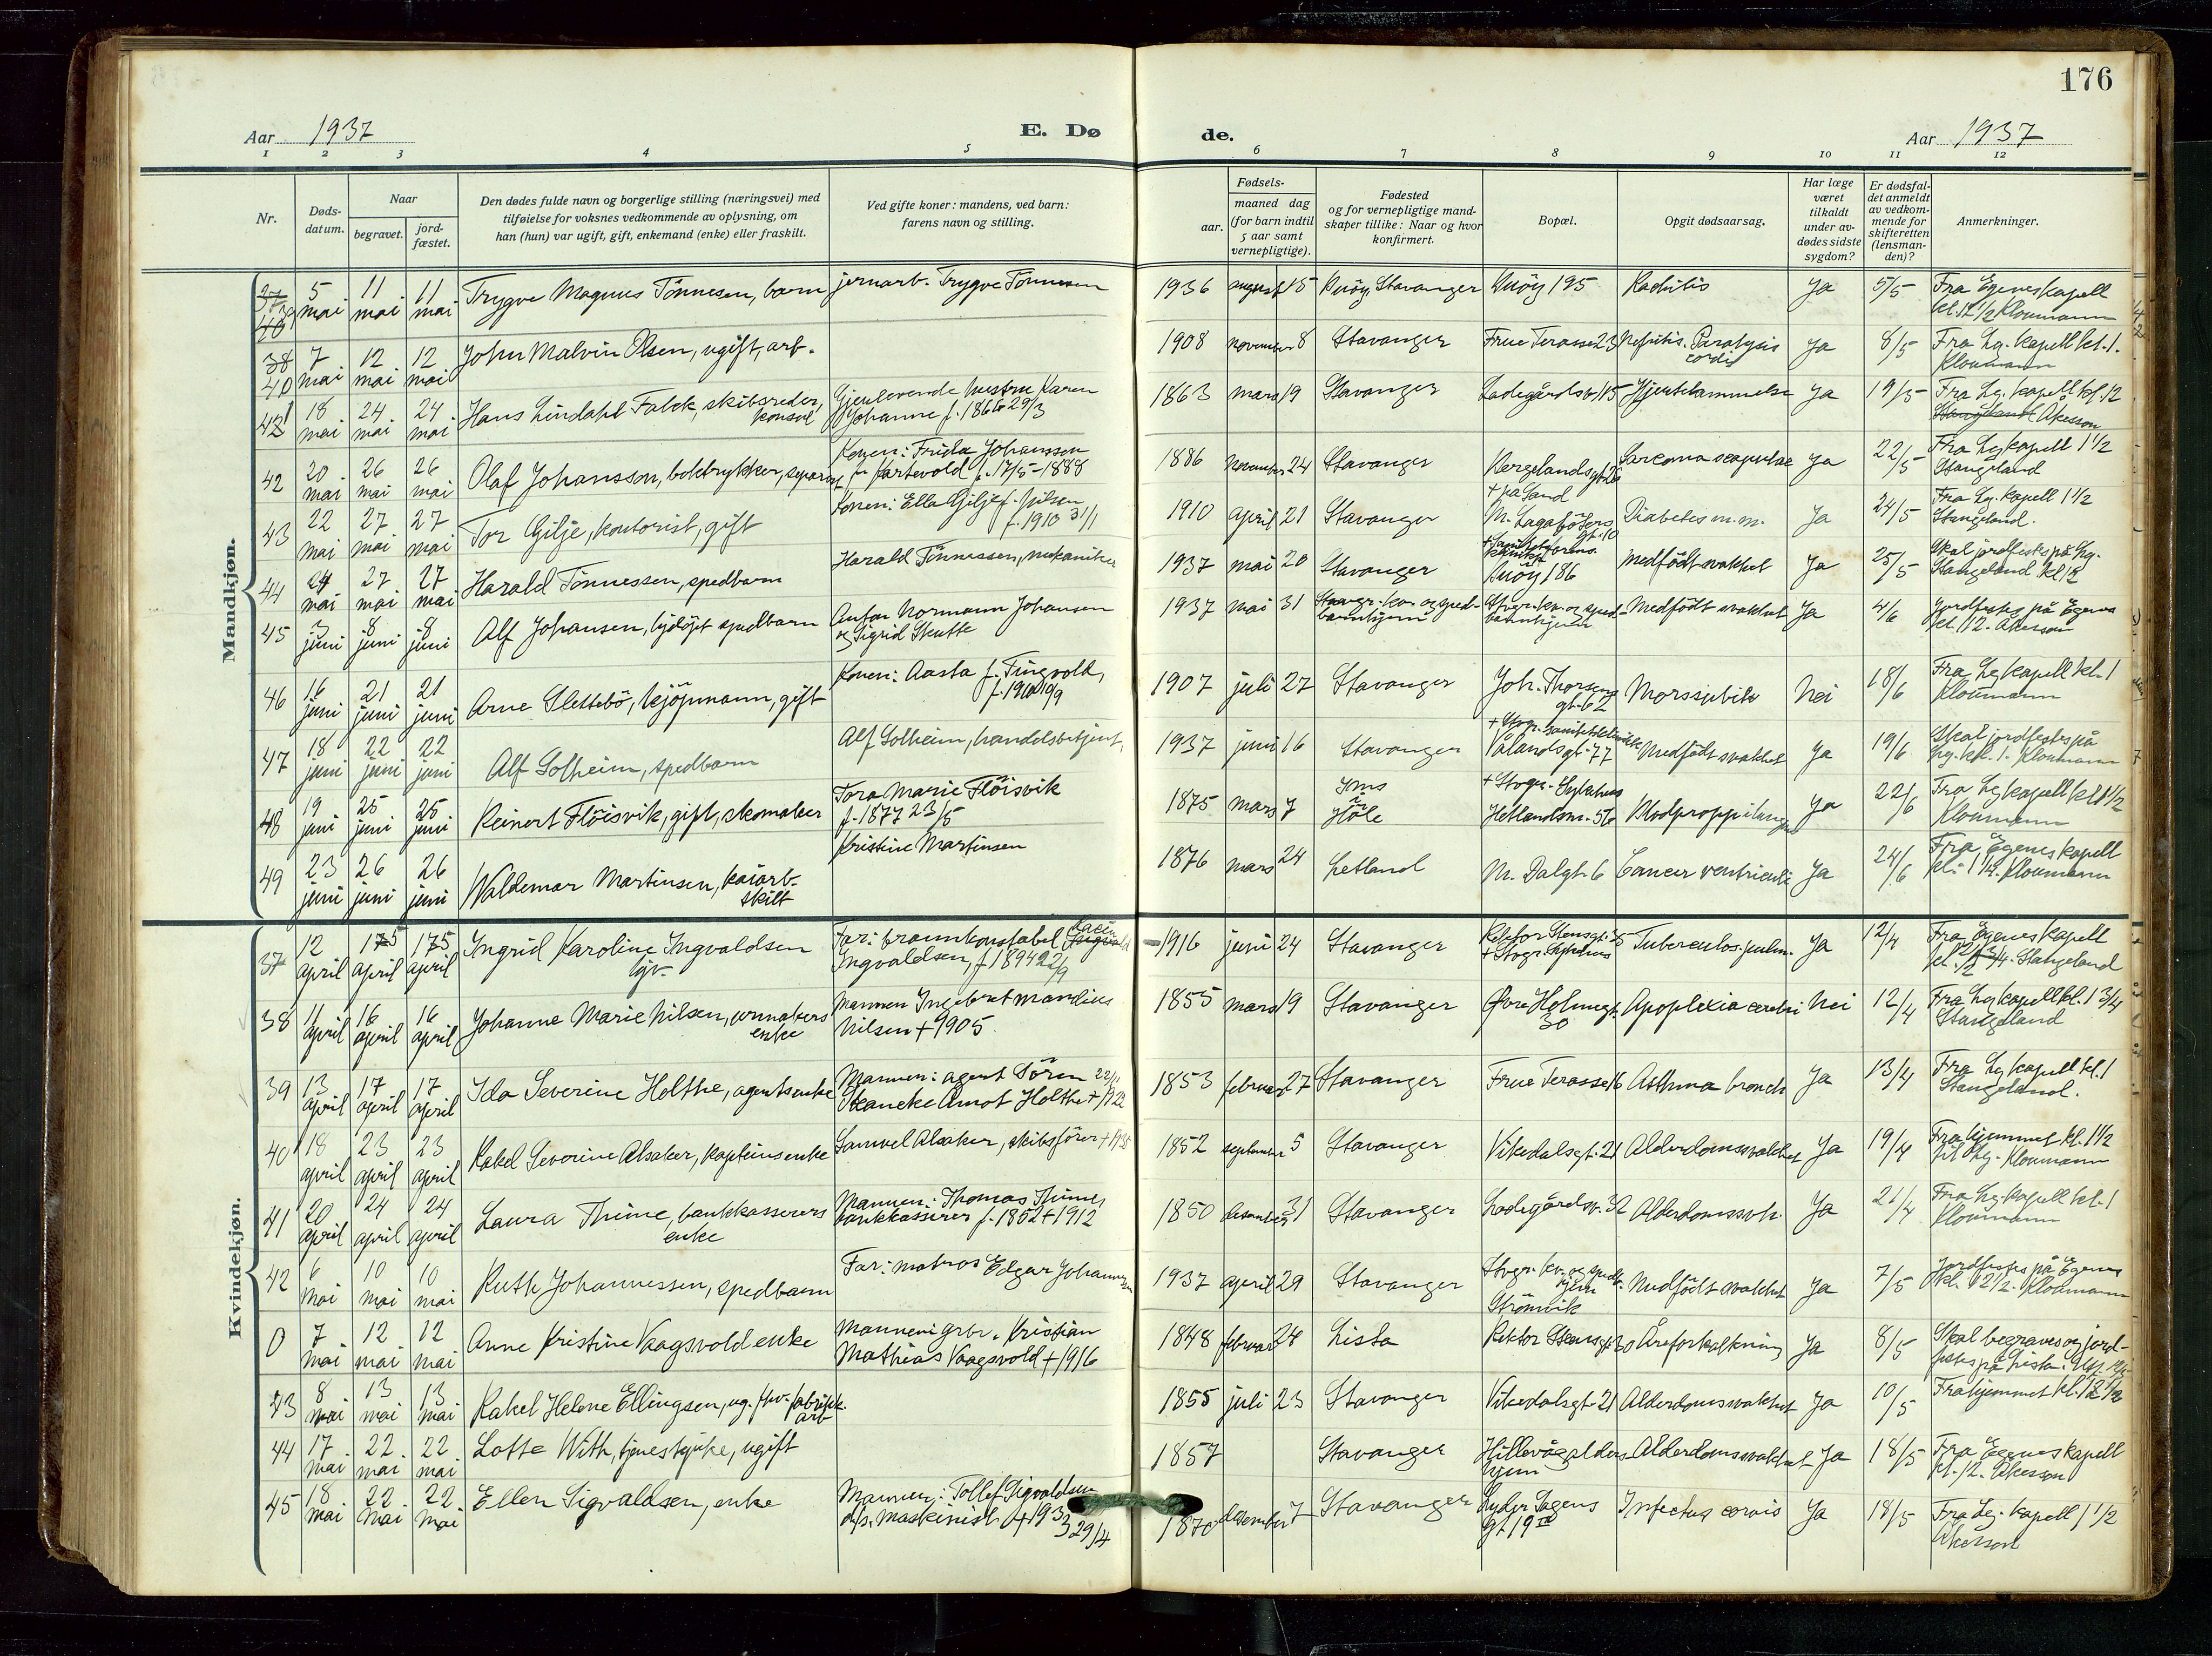 176
Aar 1937
E. Dø
de.
Aar 1937
1 2 3 4 5 6 7 8 9 10 11 12
Nr.
Døds-
datum.
Naar
begravet.
jord-
fæstet.
Den dødes fulde navn og borgerlige stilling (næringsvei) med
tilføielse for voksnes vedkommende av oplysning, om
han (hun) var ugift, gift, enkemand (enke) eller fraskilt.
Ved gifte koner: mandens, ved barn:
farens navn og stilling.
Fødsels-
aar.
maaned dag
(for barn indtil
5 aar samt
vernepligtige).
Fødested
og for vernepligtige mand-
skaper tillike: Naar og hvor
konfirmert.
Bopæl.
Opgit dødsaarsag.
Har læge
været
tilkaldt
under av-
dødes sidste
sygdom?
Er dødsfal-
det anmeldt
av vedkom-
mende for
skifteretten
(lensman-
den)?
Anmerkninger.
Mandkjøn.
39 5 mai 11 mai 11 mai Trygve Magnus Tönnesen, barn jernarb. Trygve Tönnesen 1936 august 15 Buöy, Stavanger Buöy 195 Rachitis Ja 5/5 Fra Egenes kapell
kl. 12 1/2 Kloumann
40 7 mai 12 mai 12 mai John Malvin Olsen, ugift, arb. 1908 november 8 Stavanger Frue Terasse 23 Nefritis. Paralysis
cordis Ja 8/5 Fra Lg. kapell kl. 1.
Kloumann
41 18 mai 24 mai 24 mai Hans Lindahl Falck, skibsreder,
konsul Gjenlevende hustru Karen
Johanne f. 1866 29/3 1863 mars 19 Stavanger Ladegårdsv. 15 Hjertelammelse Ja 19/5 Fra Lg. kapell kl. 12
Stangeland Åkesson
42 20 mai 26 mai 26 mai Olaf Johansson, boktrykker, separert Konen: Frida Johansson
f. Kartevold f. 17/5-1888 1886 november 24 Stavanger Kergelandsgt. 26 Sarcoma scapulae Ja 22/5 Fra Lg kapell 1 1/2
Stangeland
43 22 mai 27 mai 27 mai Tor Gilje, kontorist, gift Konen: Ella Gilje f. Nilsen
f. 1910 31/1 1910 april 21 Stavanger + på Sand
M. Lagabøters
gt. 10 Diabetes m.m. Ja 24/5 Fra Lg. kapell 1 1/2
Stangeland.
44 24 mai 27 mai 27 mai Harald Tönnessen, spedbarn Harald Tönnessen, mekaniker 1937 mai 20 Stavanger + Sanitetsforens.
klinikk
Buöy 186 Medfödt svakhet Ja 25/5 Skal jordfestes på Lg.
Stangeland kl 12
45 3 juni 8 juni 8 juni Alf Johansen, hjedöpt spedbarn Anton Normann Johansen
og Sigrid Skutte 1937 mai 31 Stavgr. kv. og sped-
barnhjem Stvgr. kv. og sped-
barnhjem Medfödt svakhet Ja 4/6 Jordfestes på Egenes
kl. 12. Åkesson
46 16 juni 21 juni 21 juni Arne Slettebö, kjöpmann, gift Konen: Aasta f. Tingvold,
f. 1910 19/9 1907 juli 27 Stavanger Joh. Thorsens
gt. 62 Mors subita Nei 18/6 Fra Lg kapell kl. 1
Kloumann
47 18 juni 22 juni 22 juni Alf Solheim, spedbarn Alf Solheim, handelsbetjent, 1937 juni 16 Stavanger + Stvgr. Sanitetsklinikk
Vålandsgt. 77 Medfödt svakhet Ja 19/6 Skal jordfestes på
Lg. kl. 1. Kloumann
48 19 juni 25 juni 25 juni Reinert Flöisvik, gift, skomaker Tora Marie Flöisvik
f. 1877 23/5 1875 mars 7 Ims
i
Höle + Stvgr. Sykehus
Hetlandsm. 56 Blodpropp i lungen Ja 22/6 Fra Lg kapell kl 1 1/2
Kloumann
49 23 juni 26 juni 26 juni Waldemar Martinsen, kaiarb.
skilt Kristine Martinsen 1876 mars 24 Hetland M. Dalgt. 6 Cancer ventriculi Ja 24/6 Fra Egenes kapell
kl. 1 1/4. Kloumann
Kvindekjøn.
37 12 april 15 april 15 april Ingrid Karoline Ingvaldsen
tjv. Far: brannkonstabel
Ingvaldsen, f. 1894 22/9 1916 juni 24 Stavanger Rektor Stensgt. 35
+ Stvgr. Sykehus Tuberculos. pulm. Ja 12/4 Fra Egenes kapell
Stangeland
38 11 april 16 april 16 april Johanne Marie Nilsen, urmakers
enke Mannen Ingebret Mandius
Nilsen + 1905. 1855 mars 19 Stavanger Øvre Holmegt.
30 Apoplexia cerebri Nei 12/4 Fra Lg kapell kl. 1 3/4
Stangeland
39 13 april 17 april 17 april Ida Severine Holthe, agents enke Mannen: agent Sören
Staneke Amot Holthe + 1922 1853 februar 27 Stavanger Frue Terasse 16 Asthma bronch Ja 13/4 Fra Lg kapell kl. 1
Stangeland.
40 18 april 23 april 23 april Rakel Severine Alsaker, kapteins enke Samuel Alsaker, skibsförer 1852 september 5 Stavanger Vikedalsgt. 21 Alderdomssvakhet Ja 19/4 Fra hjemmet kl. 1 1/2
til Lg. Kloumann
41 20 april 24 april 24 april Laura Thime, bankkasserers
enke Mannen: Thomas Thime,
bankkasserer f. 1852 + 1912 1850 desember 31 Stavanger Ladegårdsv. 32 Alderdomssvh. Ja 21/4 Fra Lg. kapell kl. 1
Kloumann
42 6 mai 10 mai 10 mai Ruth Johannessen, spedbarn Far: matros Edgar Johannessen 1937 april 29 Stavanger Stvgr. kv. og spedb.
hjem
Strömvik Medfödt svakhet Ja 7/5 Jordfestes på Egenes
kl. 12 1/2. Kloumann
0 7 mai 12 mai 12 mai Anne Kristine Vaagsvold enke Mannen: grbr. Kristian
Mathias Vaagsvold + 1916 1848 februar 28 Lista Rektor Stensgt 30 Åreforkalkning Ja 8/5 Skal begraves og jord-
festes på Lista.
43 8 mai 13 mai 13 mai Rakel Helene Ellingsen, ug. fhv. fabrikk-
arb 1855 juli 23 Stavanger Vikedalsgt. 21 Alderdomssvakhet Ja 10/5 Fra hjemmet kl. 12 1/2
44 17 mai 22 mai 22 mai Lotte With, tjenestpike, ugift 1857 Stavanger Hillevåg alders-
hjem Alderdomssvakhet Ja 18/5 Fra Egenes kapell
kl. 12. Åkesson
45 18 mai 22 mai 22 mai Ellen Sigvaldsen, enke Mannen: Tollef Sigvaldsen
d/s. Maskinist + 193
3 29/4 1870 desember 7 Stavanger Lyder Sagens
gt 19 II Infectus corais Ja 18/5 Fra Lg. kapell 1 1/2
Åkesson